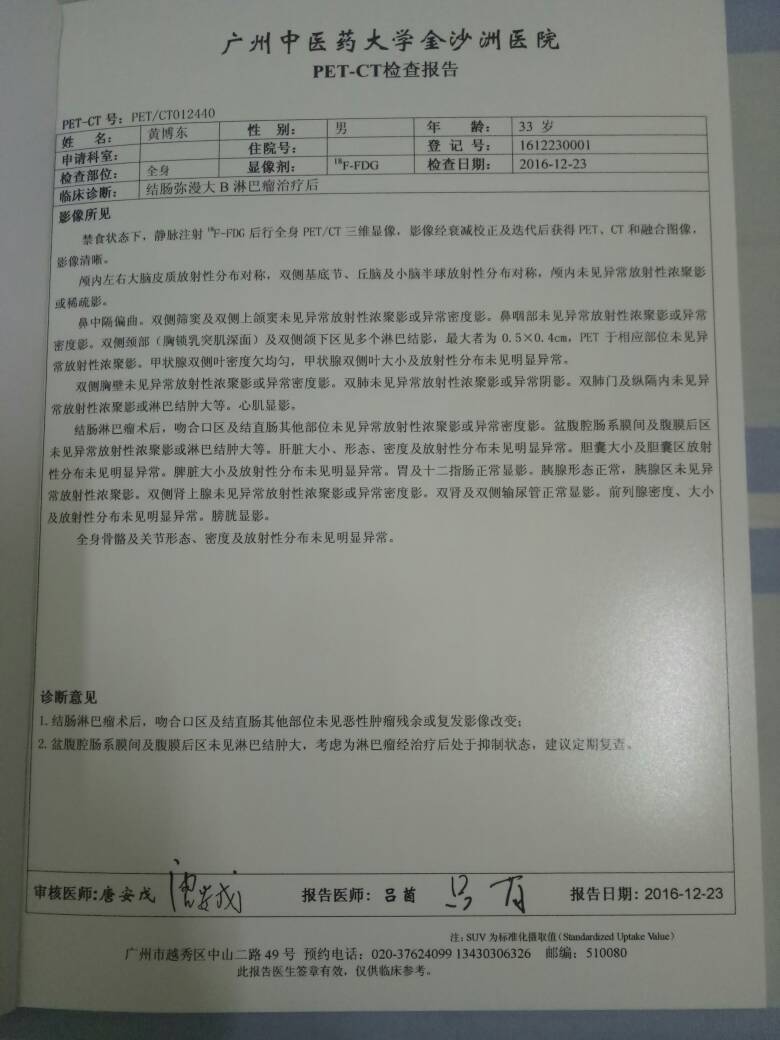 广州中医药大学金沙洲医院
PET-CT检查报告
PET-CT 号：PET/CT012440
姓 名： 黄博东 性 别： 男 年 龄： 33 岁
申请科室： 住院号： 登 记 号： 1612230001
检查部位： 全身 显像剂： ¹⁸F-FDG 检查日期： 2016-12-23
临床诊断： 结肠弥漫大 B 淋巴瘤治疗后
影像所见
禁食状态下，静脉注射 ¹⁸F-FDG 后行全身 PET/CT 三维显像，影像经衰减校正及迭代后获得 PET、CT 和融合图像，
影像清晰。
颅内左右大脑皮质放射性分布对称，双侧基底节、丘脑及小脑半球放射性分布对称，颅内未见异常放射性浓聚影
或稀疏影。
鼻中隔偏曲。双侧筛窦及双侧上颌窦未见异常放射性浓聚影或异常密度影。鼻咽部未见异常放射性浓聚影或异常
密度影。双侧颈部（胸锁乳突肌深面）及双侧颌下区见多个淋巴结影，最大者为 0.5×0.4cm，PET 于相应部位未见异
常放射性浓聚影。甲状腺双侧叶密度欠均匀，甲状腺双侧叶大小及放射性分布未见明显异常。
双侧胸壁未见异常放射性浓聚影或异常密度影。双肺未见异常放射性浓聚影或异常阴影。双肺门及纵隔内未见异
常放射性浓聚影或淋巴结肿大等。心肌显影。
结肠淋巴瘤术后，吻合口区及结直肠其他部位未见异常放射性浓聚影或异常密度影。盆腹腔肠系膜间及腹膜后区
未见异常放射性浓聚影或淋巴结肿大等。肝脏大小、形态、密度及放射性分布未见明显异常。胆囊大小及胆囊区放射
性分布未见明显异常。脾脏大小及放射性分布未见明显异常。胃及十二指肠正常显影。胰腺形态正常，胰腺区未见异
常放射性浓聚影。双侧肾上腺未见异常放射性浓聚影或异常密度影。双肾及双侧输尿管正常显影。前列腺密度、大小
及放射性分布未见明显异常。膀胱显影。
全身骨骼及关节形态、密度及放射性分布未见明显异常。
诊断意见
1.结肠淋巴瘤术后，吻合口区及结直肠其他部位未见恶性肿瘤残余或复发影像改变；
2.盆腹腔肠系膜间及腹膜后区未见淋巴结肿大，考虑为淋巴瘤经治疗后处于抑制状态，建议定期复查。
审核医师:唐安戊 唐安戊 报告医师：吕茵 报告日期: 2016-12-23
注: SUV 为标准化摄取值(Standardized Uptake Value)
广州市越秀区中山二路 49 号 预约电话：020-37624099 13430306326 邮编：510080
此报告医生签章有效，仅供临床参考。